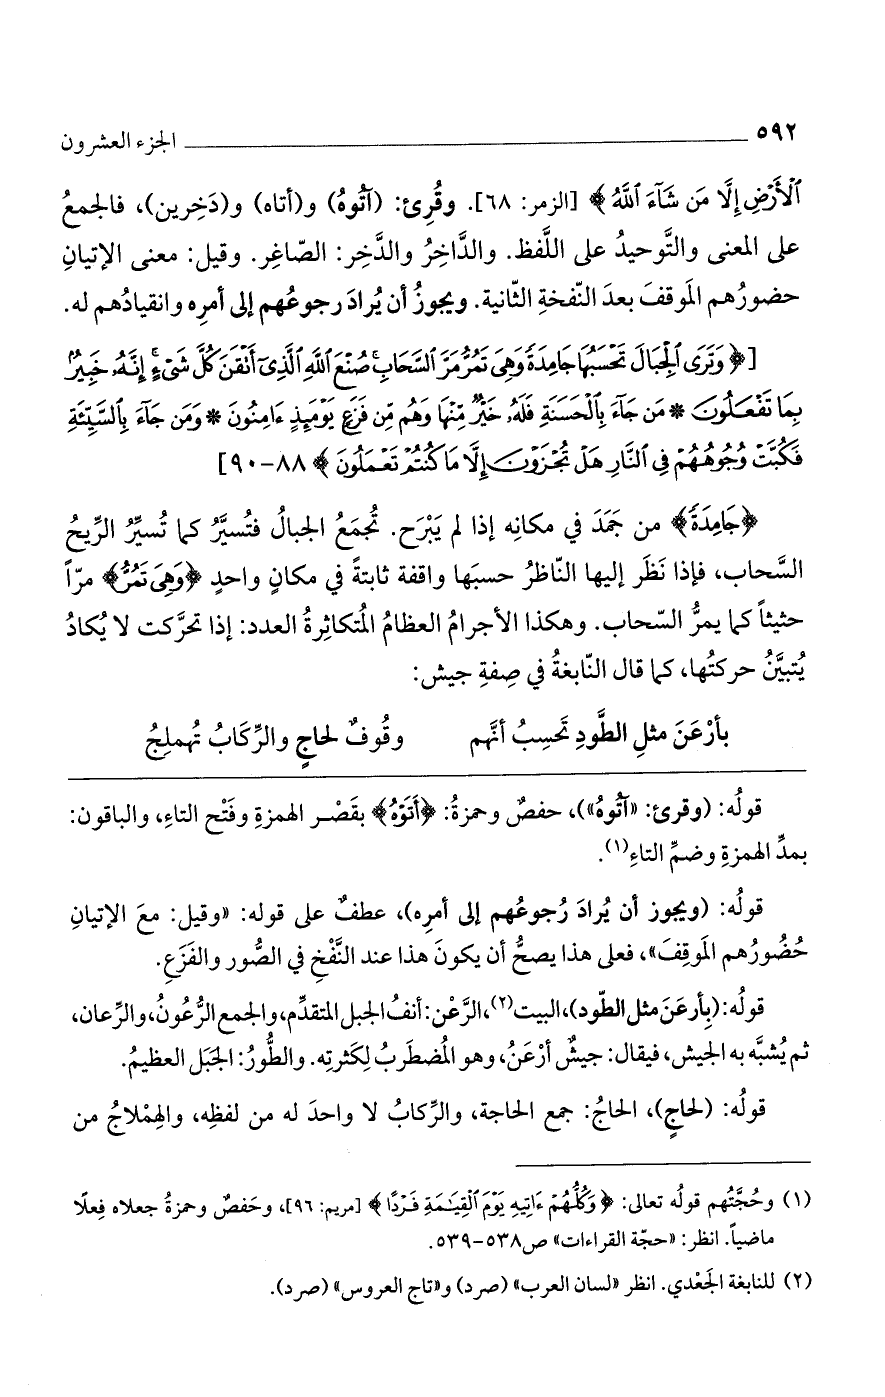 ٥٩٢ ــــــــــــــــــــــــــــــــــــــــ الجزء العشرون
ٱلْأَرْضِ إِلَّا مَن شَآءَ ٱللَّهُ﴾ [الزمر: ٦٨]. وقُرِئ: (آتُوهُ) و(أتاه) و(دَخِرين)، فالجمعُ
على المعنى والتَّوحيدُ على اللَّفظ. والدَّاخِرُ والدَّخِر: الصّاغِر. وقيل: معنى الإتيانِ
حضورُهم المَوقفَ بعدَ النّفخةِ الثّانية. ويجوزُ أن يُرادَ رجوعُهم إلى أمرِه وانقيادُهم له.
[﴿وَتَرَى ٱلْجِبَالَ تَحْسَبُهَا جَامِدَةً وَهِىَ تَمُرُّ مَرَّ ٱلسَّحَابِ صُنْعَ ٱللَّهِ ٱلَّذِىٓ أَتْقَنَ كُلَّ شَىْءٍ إِنَّهُۥ خَبِيرٌۢ
بِمَا تَفْعَلُونَ * مَن جَآءَ بِٱلْحَسَنَةِ فَلَهُۥ خَيْرٌ مِّنْهَا وَهُم مِّن فَزَعٍ يَوْمَئِذٍ ءَامِنُونَ * وَمَن جَآءَ بِٱلسَّيِّئَةِ
فَكُبَّتْ وُجُوهُهُمْ فِى ٱلنَّارِ هَلْ تُجْزَوْنَ إِلَّا مَا كُنتُمْ تَعْمَلُونَ﴾ ٨٨-٩٠]
﴿جَامِدَةً﴾ من جَمَدَ في مكانِه إذا لم يَبْرَح. تُجمَعُ الجبالُ فتُسيَّرُ كما تُسيِّرُ الرِّيحُ
السَّحاب، فإذا نَظَر إليها النّاظرُ حسبَها واقفة ثابتةً في مكانٍ واحدٍ ﴿وَهِىَ تَمُرُّ﴾ مرّاً
حثيثاً كما يمرُّ السّحاب. وهكذا الأجرامُ العظامُ المُتكاثِرةُ العدد: إذا تحرَّكت لا يُكادُ
يُتبيَّنُ حركتُها، كما قال النّابغةُ في صِفةِ جيش:
بأرْعَنَ مثلِ الطَّودِ تَحسِبُ أنَّهم وقُوفٌ لحاجٍ والرِّكَابُ تُهملِجُ
قولُه: (وقرئ: «آتُوهُ»)، حفصٌ وحمزةُ: ﴿أَتَوْهُ﴾ بقَصْرِ الهمزةِ وفَتْح التاءِ، والباقون:
بمدِّ الهمزةِ وضمِّ التاءِ(١).
قولُه: (ويجوز أن يُرادَ رُجوعُهم إلى أمرِه)، عطفٌ على قوله: «وقيل: معَ الإتيانِ
حُضُورُهم المَوقِفَ»، فعلى هذا يصحُّ أن يكونَ هذا عند النَّفْخِ في الصُّور والفَزَعِ.
قولُه: (بِأرعَنَ مثل الطّود)، البيت(٢)، الرَّعْن: أنفُ الجبل المتقدِّم، والجمع الرُّعُونُ، والرِّعان،
ثم يُشبَّه به الجيش، فيقال: جيشٌ أرْعَنُ، وهو المُضطَرِبُ لِكَثرتِه. والطُّورُ: الجَبَل العظيمُ.
قولُه: (لحاجٍ)، الحاجُ: جمع الحاجة، والرِّكابُ لا واحدَ له من لفظِه، والهِمْلاجُ من
(١) وحُجَّتُهم قولُه تعالى: ﴿وَكُلُّهُمْ ءَاتِيهِ يَوْمَ ٱلْقِيَـٰمَةِ فَرْدًا﴾ [مريم: ٩٦]، وحَفصٌ وحمزةُ جعلاه فِعلًا
ماضياً. انظر: «حجّة القراءات» ص٥٣٨-٥٣٩.
(٢) للنابغة الجَعْدي. انظر «لسان العرب» (صرد) و«تاج العروس» (صرد).